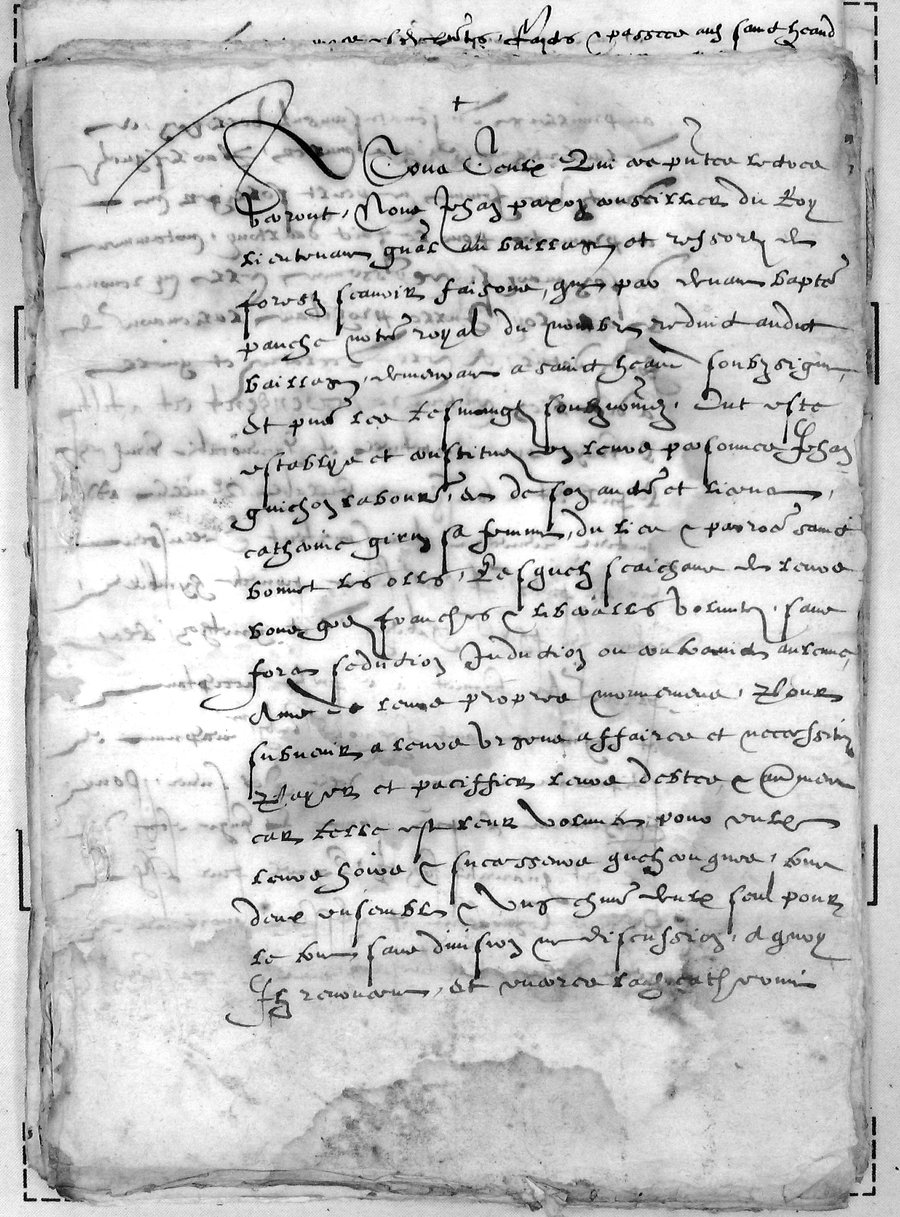 faicts & passees aud sainct heand
A Tous Ceulx Qui ces pntes lectres
verront, Nous Jehan papon conseillier du Roy
lieutenant gnal au bailliage et ressort de
forestz scavoir faisons, que par devant baptē
panche notē royal du nombre reduict audict
bailliage, demeurant a sainct heand soubzsigne,
Et pns les tesmoingtz soubznomez, Ont este
establys et constituez en leurs personnes Jehan
guichon labourr, et de son auctē et licence,
catherine girin sa femme, du lieu & parroē sainct
bonnet les olles, Lesquelz scaichans de leurs
bons grez franches & liberalles voluntez, sans
force seduction Induction ou contraincte aulcune,
Ains de leurs propres mouvemens, Pour
subvenir a leurs urgens affaires et necessitez
Payer et paciffier leurs debtes, &
car telle est leur volunte, pour eulx
leurs hoirs & successeurs quelconques, tous
deux ensemble & ung chūn deulx seul pour
le tout sans division ne discussion, A quoy
Ilz renoncent, Et encores lad catherine